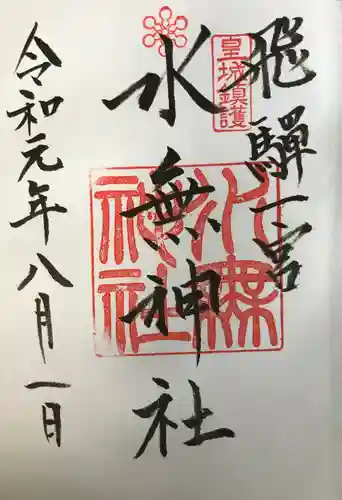 飛騨一宮
皇城鎮護
水無神社
水無神社
令和元年八月一日